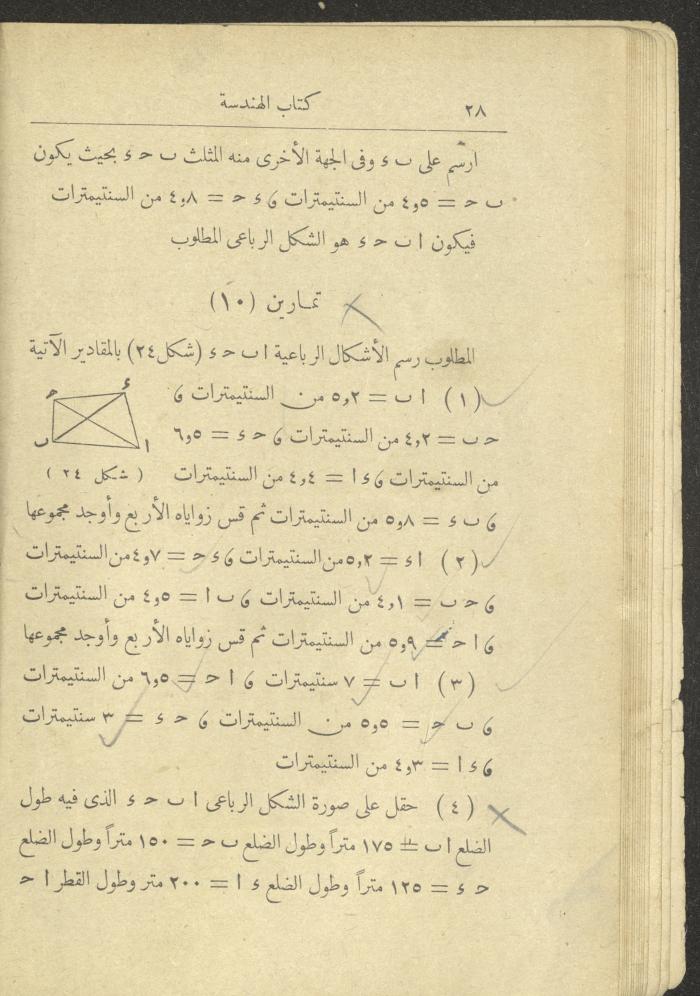 ٢٨
كتاب الهندسة
ارسم على ب ء وفى الجهة الأخرى منه المثلث ب ح ء بحيث يكون
ب ح = ٤٫٥ من السنتيمترات ٯ ء ح = ٤٫٨ من السنتيمترات
فيكون ا ب ح ء هو الشكل الرباعى المطلوب
تمـارين (١٠)
المطلوب رسم الأشكال الرباعية ا ب ح ء (شكل ٢٤) بالمقادير الآتية
(١) ا ب = ٥٫٢ من السنتيمترات ٯ
ح ب = ٤٫٢ من السنتيمترات ٯ ح ء = ٦٫٥
من السنتيمترات ٯ ء ا = ٤٫٤ من السنتيمترات
ء
ح
ب
ا
( شكل ٢٤ )
ٯ ب ء = ٥٫٨ من السنتيمترات ثم قس زواياه الأربع وأوجد مجموعها
(٢) ا ء = ٥٫٢ من السنتيمترات ٯ ء ح = ٤٫٧ من السنتيمترات
ٯ ح ب = ٤٫١ من السنتيمترات ٯ ب ا = ٤٫٥ من السنتيمترات
ٯ ا ح = ٥٫٩ من السنتيمترات ثم قس زواياه الأربع وأوجد مجموعها
(٣) ا ب = ٧ سنتيمترات ٯ ا ح = ٦٫٥ من السنتيمترات
ٯ ب ح = ٥٫٥ من السنتيمترات ٯ ح ء = ٣ سنتيمترات
ٯ ء ا = ٤٫٣ من السنتيمترات
(٤) حقل على صورة الشكل الرباعى ا ب ح ء الذى فيه طول
الضلع ا ب = ١٧٥ متراً وطول الضلع ب ح = ١٥٠ متراً وطول الضلع
ح ء = ١٢٥ متراً وطول الضلع ء ا = ٢٠٠ متر وطول القطر ا ح